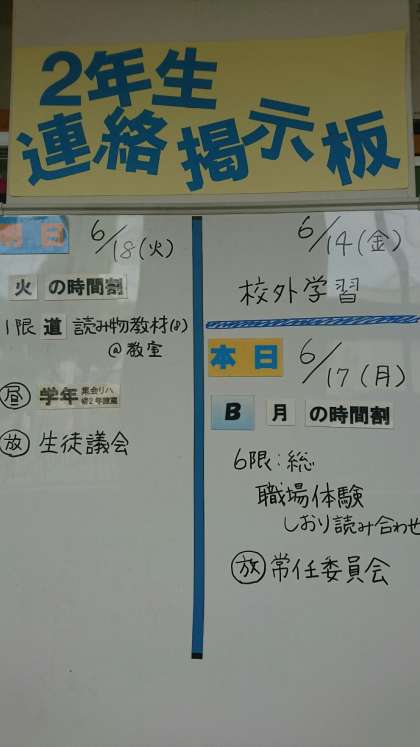 2年生
連絡掲示板
6/14(金)
校外学習
本日 6/17(月)
B 月 の時間割
6限:総
職場体験
しおり読み合わせ
放 常任委員会
明日 6/18(火)
火 の時間割
1限 道 読み物教材(8)
@教室
昼 学年 集会リハ
放 生徒議会